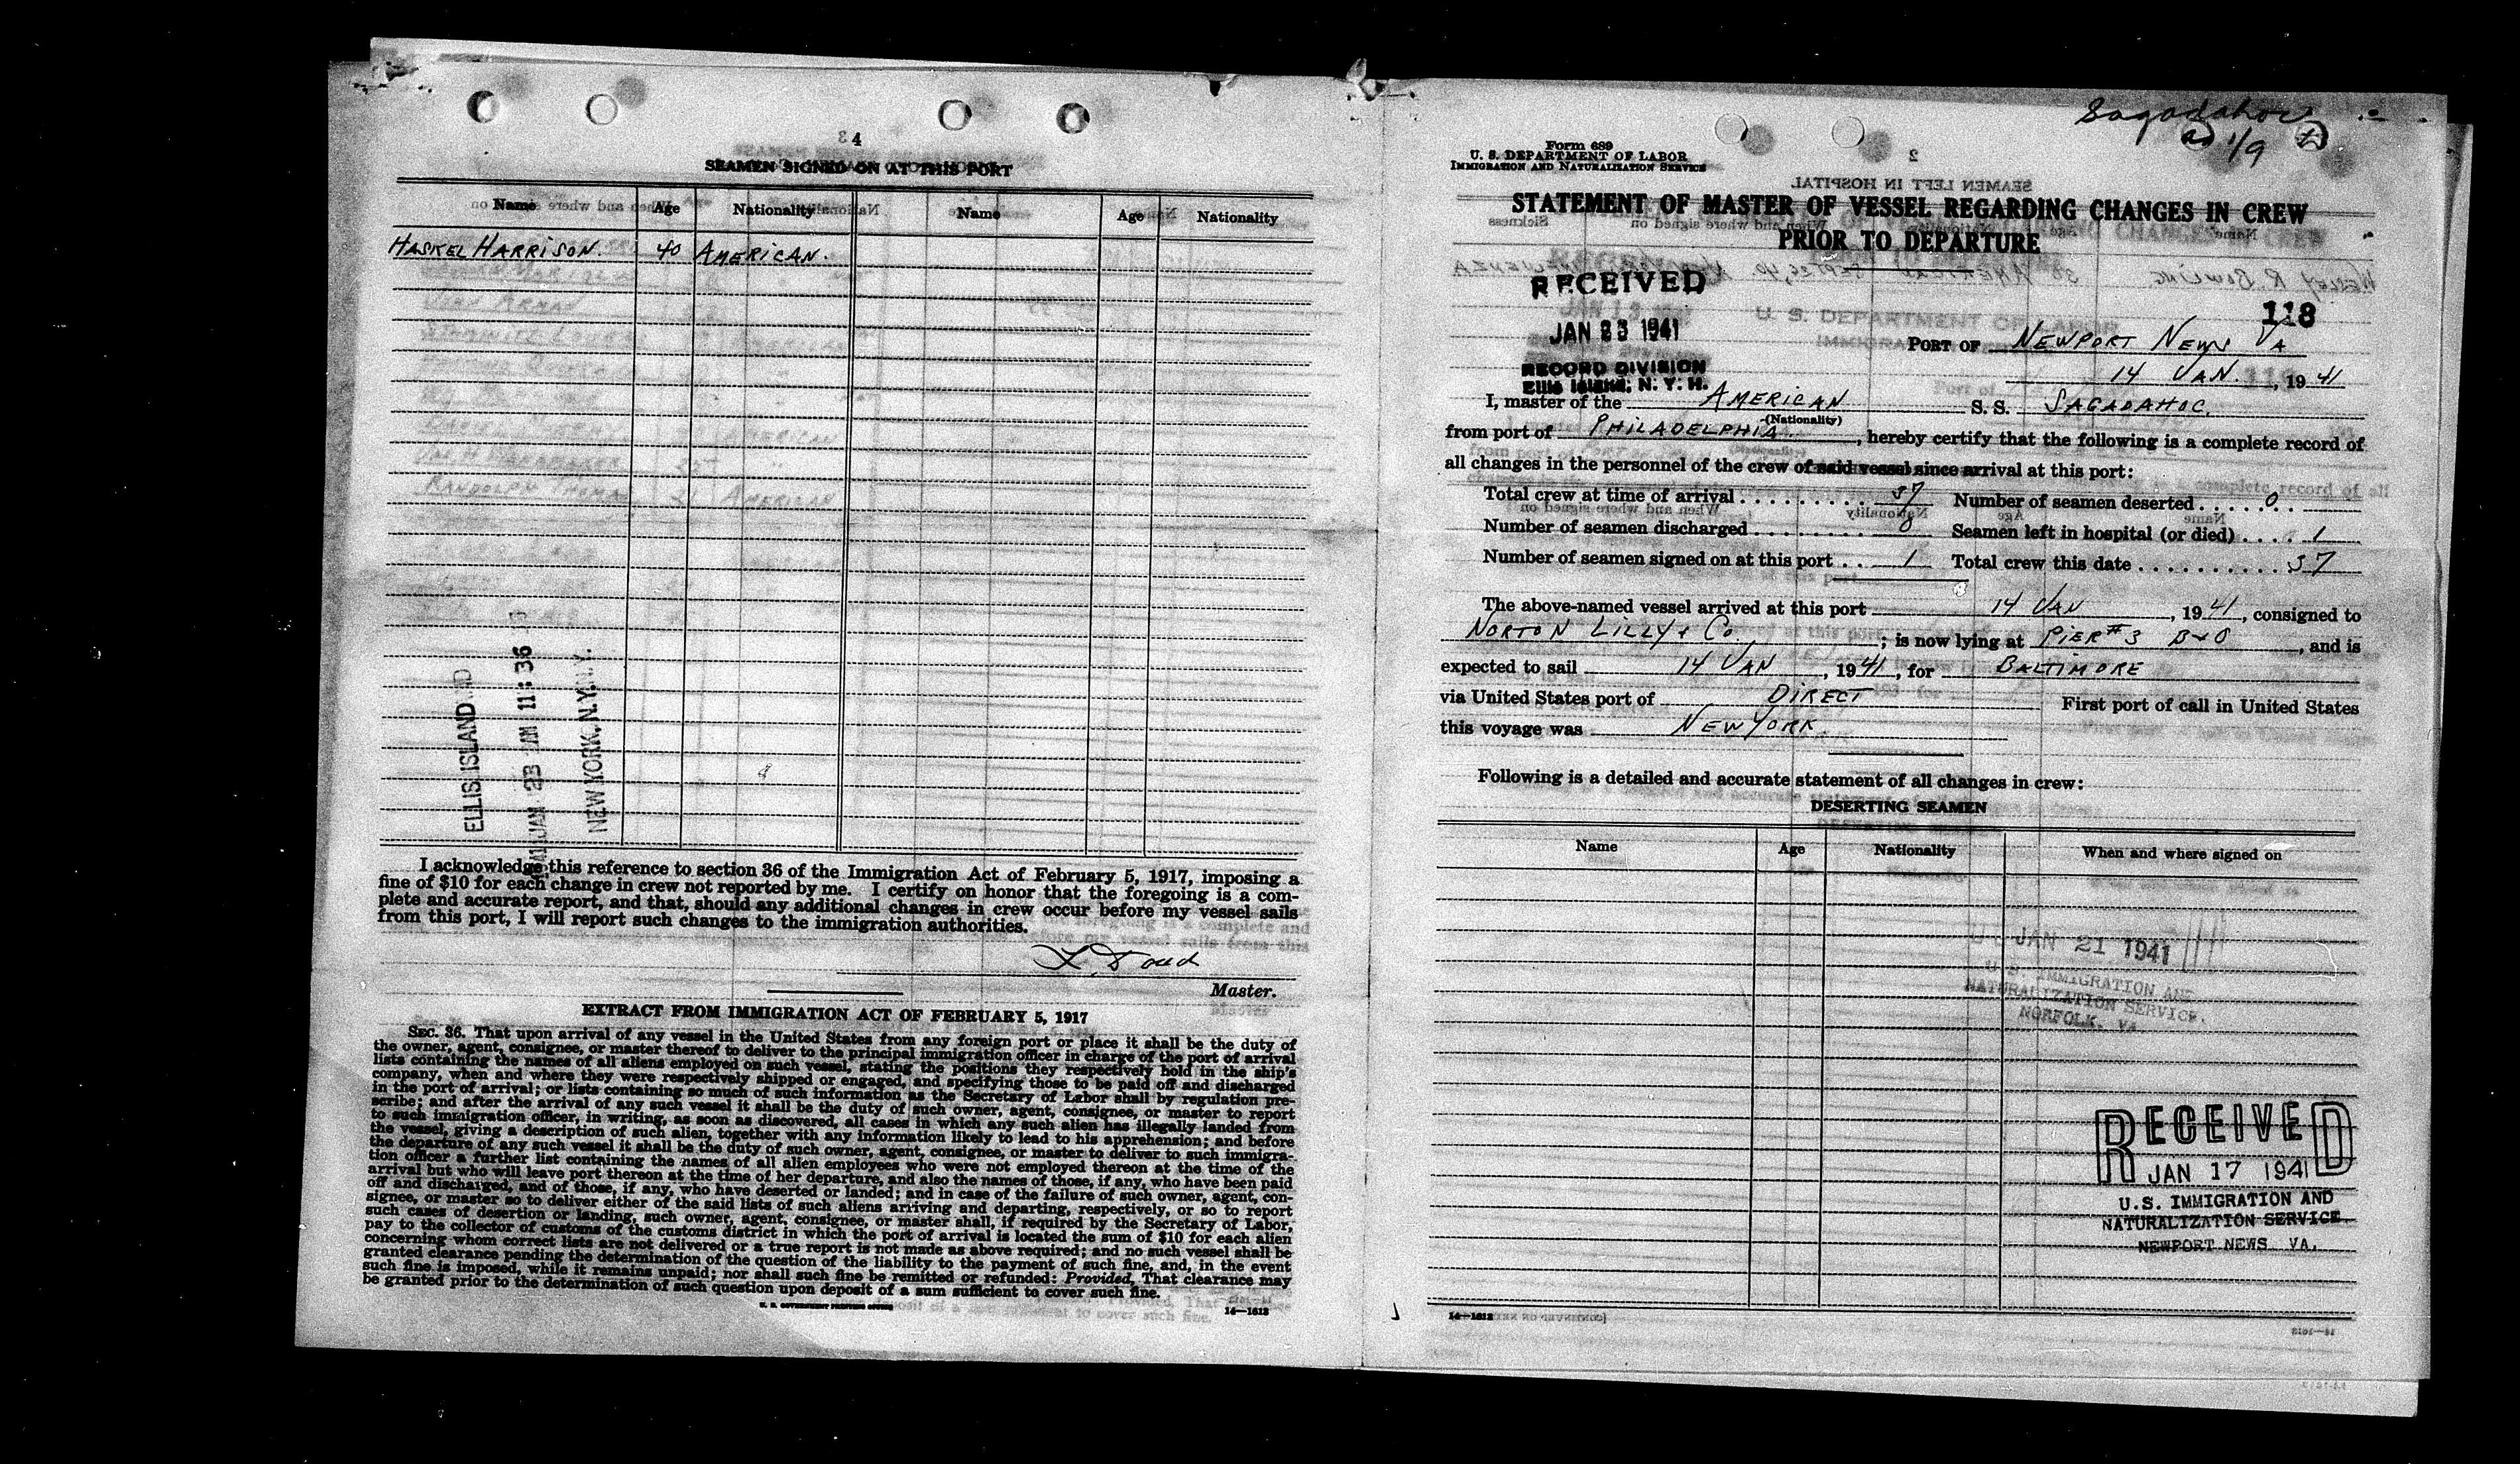 4
SEAMEN SIGNED ON AT THIS PORT
Name Age Nationality Name Age Nationality
HASKEL HARRISON. 40 AMERICAN.
ELLIS ISLAND
1941 JAN 23 AM 11:36
NEW YORK, N.Y.
I acknowledge this reference to section 36 of the Immigration Act of February 5, 1917, imposing a
fine of $10 for each change in crew not reported by me. I certify on honor that the foregoing is a com-
plete and accurate report, and that, should any additional changes in crew occur before my vessel sails
from this port, I will report such changes to the immigration authorities.
Master.
EXTRACT FROM IMMIGRATION ACT OF FEBRUARY 5, 1917
SEC. 36. That upon arrival of any vessel in the United States from any foreign port or place it shall be the duty of
the owner, agent, consignee, or master thereof to deliver to the principal immigration officer in charge of the port of arrival
lists containing the names of all aliens employed on such vessel, stating the positions they respectively hold in the ship's
company, when and where they were respectively shipped or engaged, and specifying those to be paid off and discharged
in the port of arrival; or lists containing so much of such information as the Secretary of Labor shall by regulation pre-
scribe; and after the arrival of any such vessel it shall be the duty of such owner, agent, consignee, or master to report
to such immigration officer, in writing, as soon as discovered, all cases in which any such alien has illegally landed from
the vessel, giving a description of such alien, together with any information likely to lead to his apprehension; and before
the departure of any such vessel it shall be the duty of such owner, agent, consignee, or master to deliver to such immigra-
tion officer a further list containing the names of all alien employees who were not employed thereon at the time of the
arrival but who will leave port thereon at the time of her departure, and also the names of those, if any, who have been paid
off and discharged, and of those, if any, who have deserted or landed; and in case of the failure of such owner, agent, con-
signee, or master so to deliver either of the said lists of such aliens arriving and departing, respectively, or so to report
such cases of desertion or landing, such owner, agent, consignee, or master shall, if required by the Secretary of Labor,
pay to the collector of customs of the customs district in which the port of arrival is located the sum of $10 for each alien
concerning whom correct lists are not delivered or a true report is not made as above required; and no such vessel shall be
granted clearance pending the determination of the question of the liability to the payment of such fine, and, in the event
such fine is imposed, while it remains unpaid; nor shall such fine be remitted or refunded: Provided, That clearance may
be granted prior to the determination of such question upon deposit of a sum sufficient to cover such fine.
U. S. GOVERNMENT PRINTING OFFICE 14—1612
Sagadahoc
1/9
Form 689
U. S. DEPARTMENT OF LABOR
IMMIGRATION AND NATURALIZATION SERVICE
STATEMENT OF MASTER OF VESSEL REGARDING CHANGES IN CREW
PRIOR TO DEPARTURE
RECEIVED
JAN 23 1941
RECORD DIVISION
Ellis Island, N. Y. H.
118
PORT OF NEWPORT NEWS VA
14 JAN., 1941
I, master of the AMERICAN S. S. SAGADAHOC.
(Nationality)
from port of PHILADELPHIA., hereby certify that the following is a complete record of
all changes in the personnel of the crew of said vessel since arrival at this port:
Total crew at time of arrival 37 Number of seamen deserted 0
Number of seamen discharged 0 Seamen left in hospital (or died) 1
Number of seamen signed on at this port 1 Total crew this date 37
The above-named vessel arrived at this port 14 JAN, 1941, consigned to
NORTON LILLY & Co.; is now lying at PIER #3 B&O, and is
expected to sail 14 JAN, 1941, for BALTIMORE
via United States port of DIRECT First port of call in United States
this voyage was NEW YORK.
Following is a detailed and accurate statement of all changes in crew:
DESERTING SEAMEN
Name Age Nationality When and where signed on
JAN 21 1941
U. S. IMMIGRATION AND
NATURALIZATION SERVICE.
NORFOLK, VA.
RECEIVED
JAN 17 1941
U.S. IMMIGRATION AND
NATURALIZATION SERVICE
NEWPORT NEWS VA.
14—1612